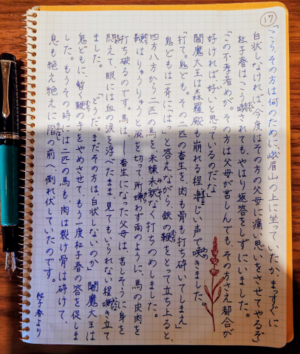 17
「こら、その方は何のために、峨眉山の上に坐っていたか、まっすぐに
白状しなければ、今度はその方の父母に痛い思いをさせてやるぞ」
杜子春はこう嚇されても、やはり返答をしずにいました。
「この不孝者めが。その方は父母が苦しんでも、その方さえ都合が
好ければ、好いと思っているのだな」
閻魔大王は森羅殿も崩れる程、凄じい声で喚きました。
「打て。鬼ども。その二匹の畜生を、肉も骨も打ち砕いてしまえ」
鬼どもは一斉に「はっ」と答えながら、鉄の鞭をとって立ち上ると、
四方八方から二匹の馬を、未練未釈なく打ちのめしました。
鞭はりゅうりゅうと風を切って、所嫌わず雨のように、馬の皮肉を
打ち破るのです。馬は、畜生になった父母は、苦しそうに身を
悶えて、眼には血の涙を浮べたまま、見てもいられない程嘶き立て
ました。
「どうだ。まだその方は白状しないのか」 閻魔大王は
鬼どもに、暫く鞭の手をやめさせて、もう一度杜子春の答を促しま
した。もうその時には二匹の馬も、肉は裂け骨は砕けて、
息も絶え絶えに階の前へ、倒れ伏していたのです。
杜子春より